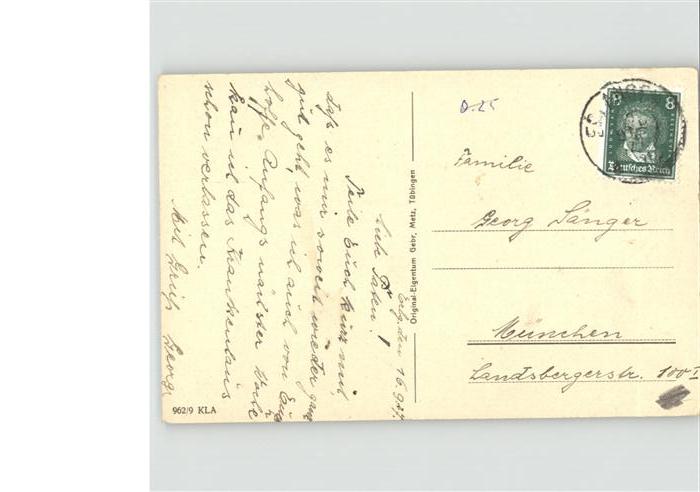 Erlg. den 16.9.27.
Liebe Paten!
Teile Euch kurz mit,
daß es mir soweit wieder ganz
gut geht, was ich auch von Euch
hoffe. Anfangs nächster Woche
kan ich das Krankenhaus
schon verlassen.
Mit Gruß Georg.
962/9 KLA
Original-Eigentum Gebr. Metz, Tübingen
0.25
8 8
Deutsches Reich
Familie
Georg Sänger
München
Landsbergerstr. 100 I